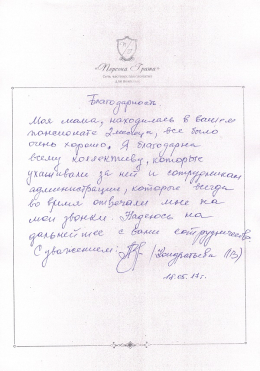 Благодарность
Моя мама, находилась в вашем
пансионате 2 месяца, все было
очень хорошо. Я благодарна
всему коллективу, которые
ухаживали за ней и сотрудникам
администрации, которые всегда
во время отвечали мне на
мои звонки. Надеюсь на
дальнейшее с вами сотрудничество
С уважением: